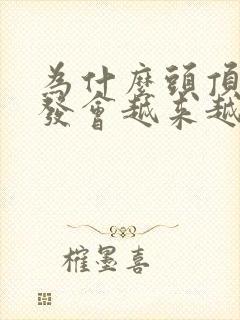 為什麼頭頂
發會越來越
榷墨喜